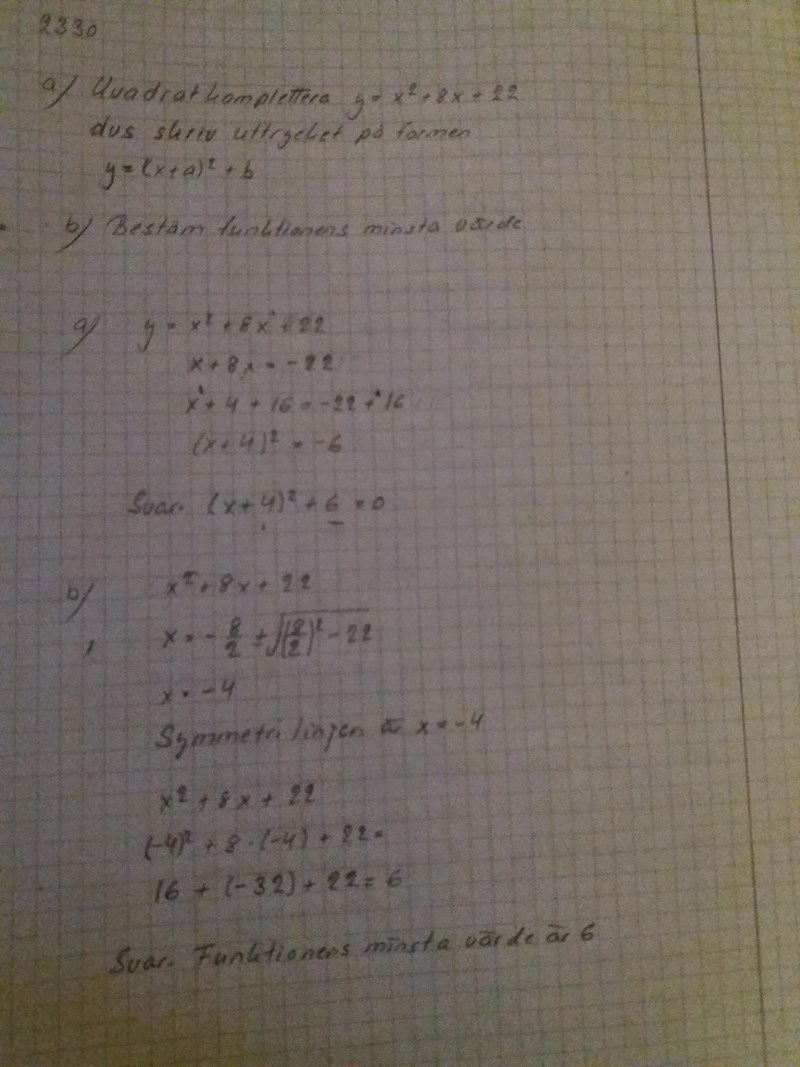 2330
a) Quadratkomplettera y = x² + 8x + 22
dvs skriv uttrycket på formen
y = (x+a)² + b
b) Bestäm funktionens minsta värde
a) y = x² + 8x + 22
x + 8x = -22
x + 4 + 16 = -22 + 16
(x+4)² = -6
Svar. (x+4)² + 6 = 0
b) x² + 8x + 22
x = - 8/2 ± √(8/2)² - 22
x = -4
Symmetri linjen är x = -4
x² + 8x + 22
(-4)² + 8 · (-4) + 22 =
16 + (-32) + 22 = 6
Svar. Funktionens minsta värde är 6